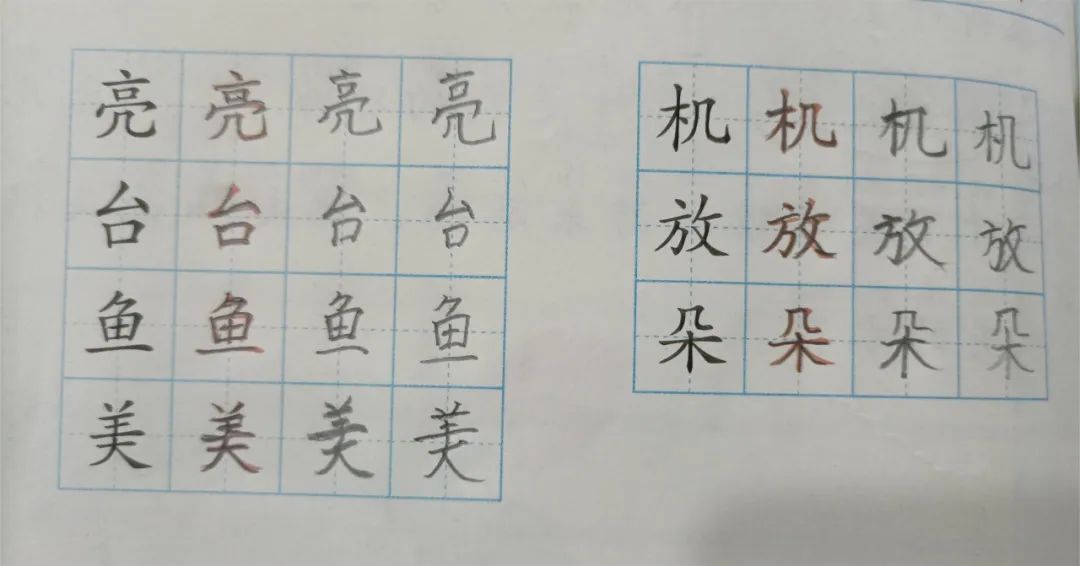 亮亮亮亮
台台台台
鱼鱼鱼鱼
美美美美
机机机机
放放放放
朵朵朵朵